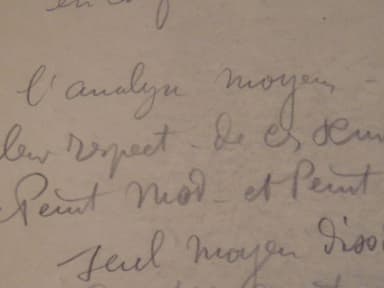 l'analyse moyen -
leur respect - de ces
Peint Mod - et Peint
seul moyen